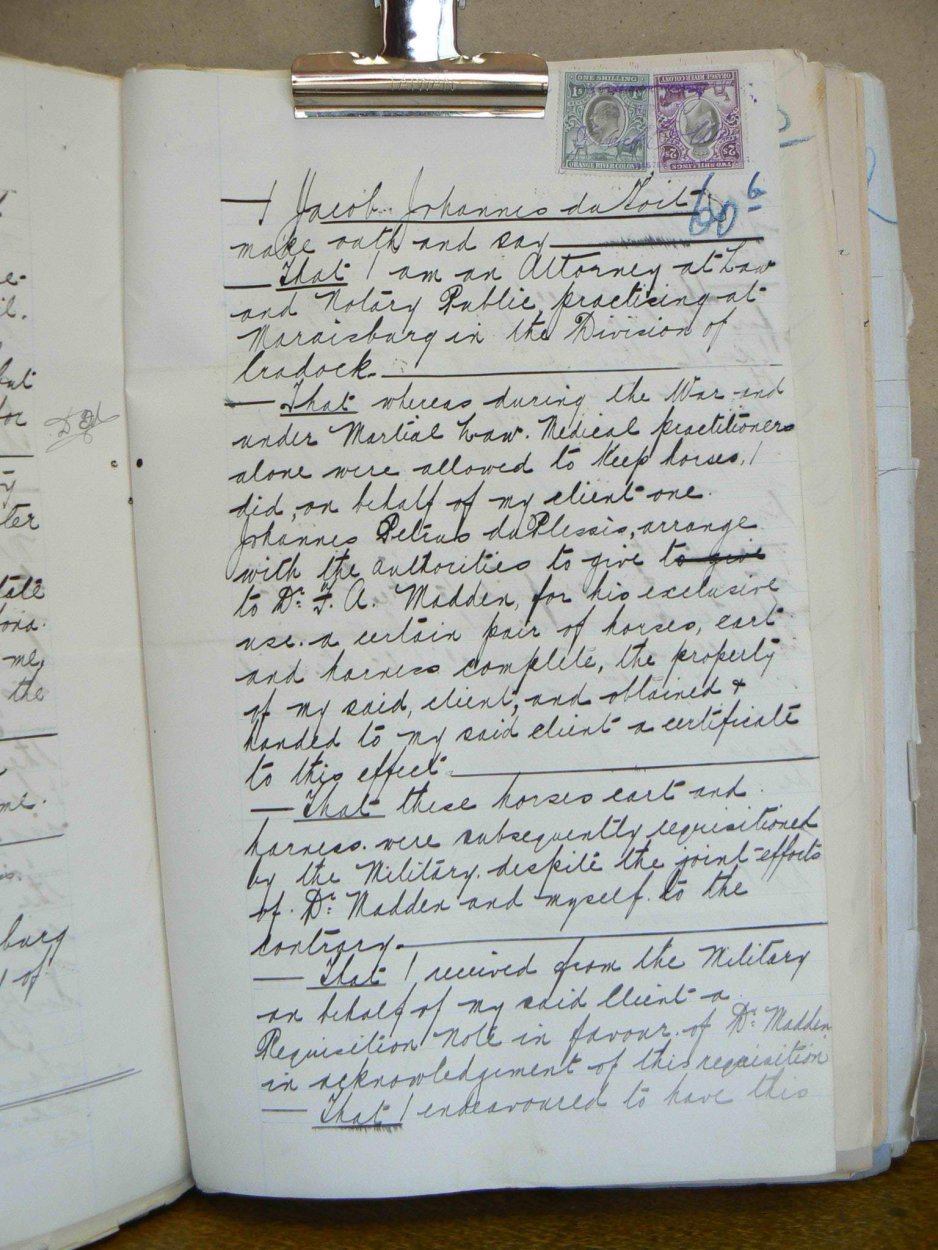 ONE SHILLING
ORANGE RIVER COLONY
ORANGE RIVER COLONY
TWO SHILLINGS
2s
60 6
— I Jacob Johannes du Toit
make oath and say —
— That I am an Attorney at Law
and Notary Public practising at
Maraisburg in the Division of
Cradock. —
— That whereas during the War and
under Martial Law. Medical practitioners
alone were allowed to keep horses, I
did, on behalf of my client one
Johannes Petrus du Plessis, arrange
with the authorities to give to give
to Dr. F. A. Madden, for his exclusive
use. a certain pair of horses, cart
and harness complete, the property
of my said, client, and obtained &
handed to my said client a certificate
to this effect. —
— That these horses cart and
harness. were subsequently requisitioned
by the Military. despite the joint efforts
of. Dr. Madden and myself. to the
contrary. —
— That I received from the Military
on behalf of my said Client a
Requisition Note in favour. of Dr. Madden
in acknowledgement of this requisition
— That I endeavoured to have this
but
for
ter
me,
the
me.
burg
of